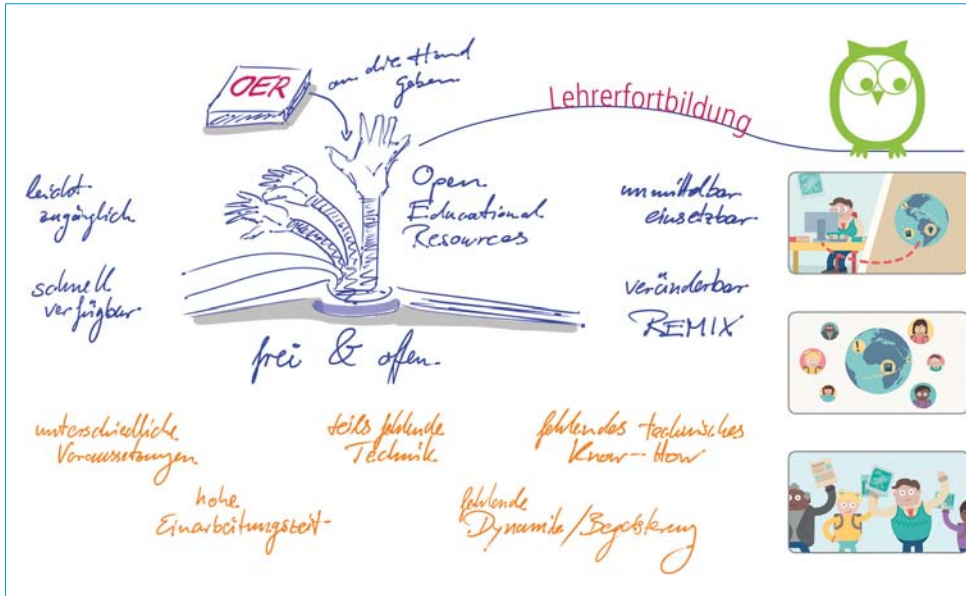 OER
an die Hand
geben
Lehrerfortbildung
leicht
zugänglich
Open
Educational
Resources
unmittelbar
einsetzbar
schnell
verfügbar
veränderbar
REMIX
frei & offen
unterschiedliche
Voraussetzungen
teils fehlende
Technik
fehlendes technisches
Know-How
hohe
Einarbeitungszeit
fehlende
Dynamik/Begeisterung